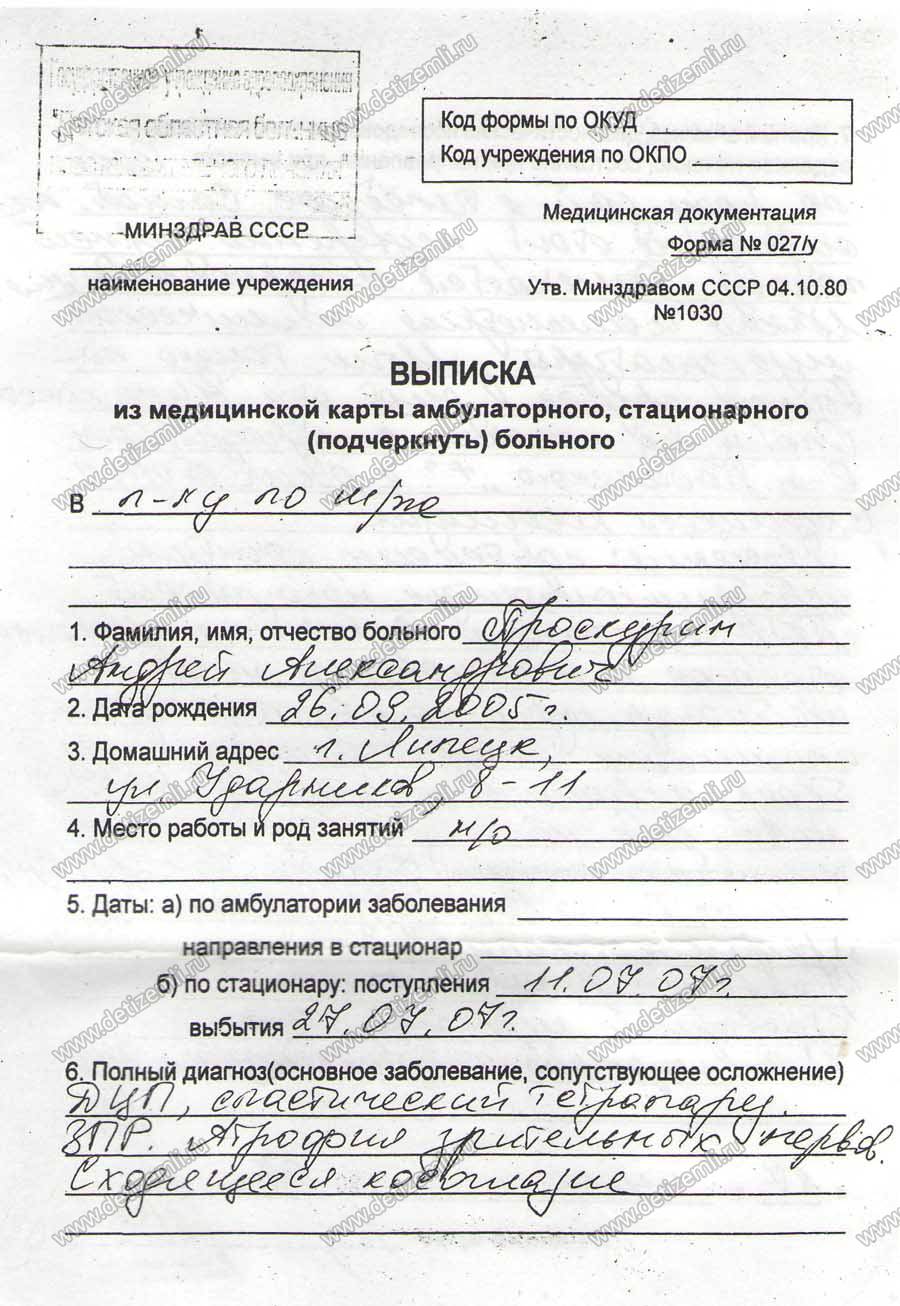 Государственное учреждение здравоохранения
областная больница
МИНЗДРАВ СССР
наименование учреждения
Код формы по ОКУД
Код учреждения по ОКПО
Медицинская документация
Форма № 027/у
Утв. Минздравом СССР 04.10.80
№1030
ВЫПИСКА
из медицинской карты амбулаторного, стационарного
(подчеркнуть) больного
В п-ку по м/ж
1. Фамилия, имя, отчество больного Проскурин
Андрей Александрович
2. Дата рождения 26.09.2005г.
3. Домашний адрес г. Липецк,
ул. Ударников, 8-11
4. Место работы и род занятий н/о
5. Даты: а) по амбулатории заболевания
направления в стационар
б) по стационару: поступления 11.07.07г.
выбытия 27.07.07г.
6. Полный диагноз(основное заболевание, сопутствующее осложнение)
ДЦП, спастический тетрапарез.
ЗПР. Атрофия зрительных нервов.
Сходящееся косоглазие
www.detizemli.ru